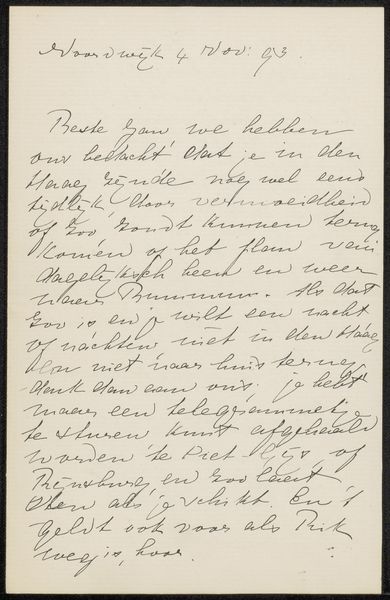 Noordwijk 4 Nov: 93.
Beste Jan we hebben
ons bedacht dat je in den
Haag zijnde nog wel eens
tijdlijk door vermoeidheid
of zoo zoudt kunnen terug
komen op het plan van
dagelijksch heen en weer
naar Bummum. Als dat
zoo is en je wilt een nacht
of nachten niet in den Haag
en niet naar huis terug
denk dan aan ons. je hebt
maar een telegrammetje
te sturen, kunt afgehaald
worden te Piet Gijs of
Rijnsburg, en zoo laat
eten als je schikt. En 't
geldt ook voor als Rik
weg is, hoor.